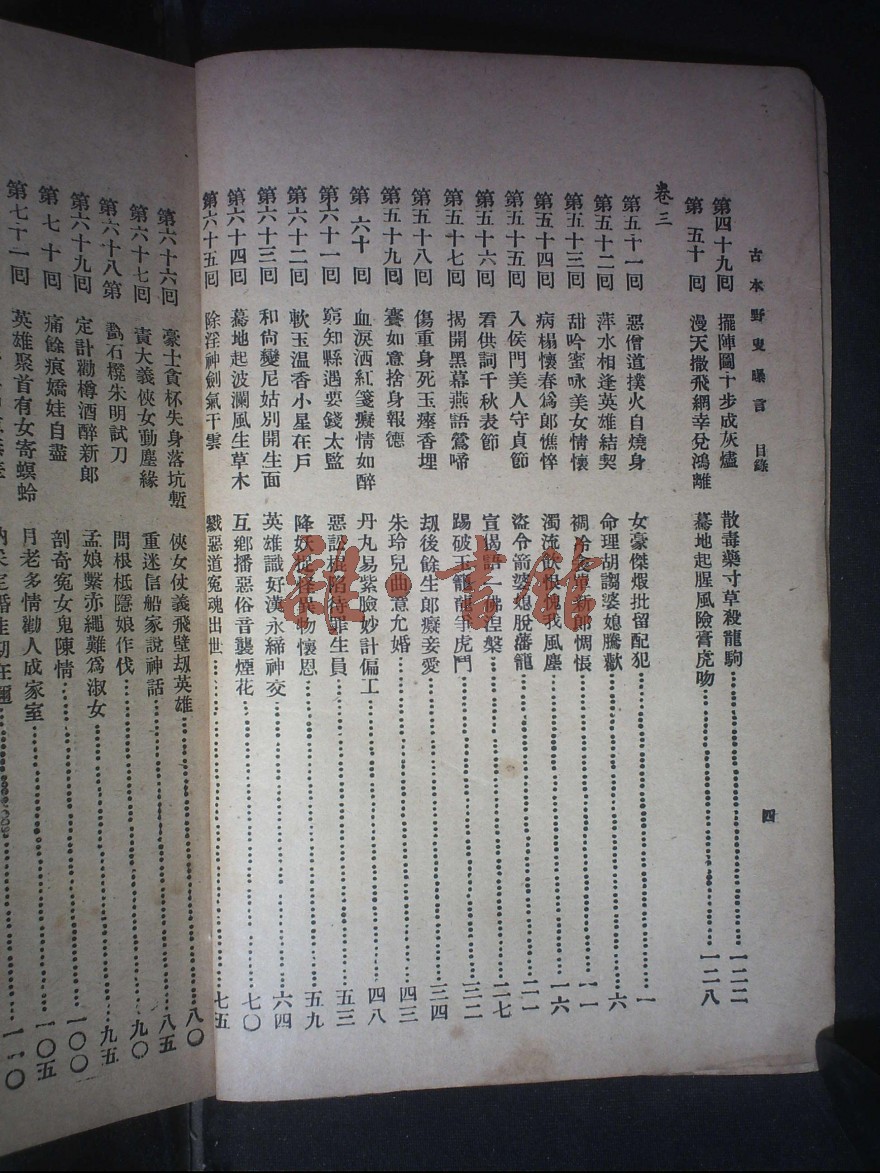 古本野叟曝言　目錄
四
第四十九回　擺陣圖十步成灰燼　散毒藥寸草殺龍駒……一二二
第五十回　漫天撒飛網幸兌鴻離　驀地起腥風險膏虎吻……一二八
卷三
第五十一回　惡僧道撲火自燒身　女豪傑煅批留配犯……一
第五十二回　萍水相逢英雄結契　命理胡謅婆媳騰歡……六
第五十三回　甜吟蜜咏美女情懷　裯冷衾單新郎惆悵……一一
第五十四回　病榻懷春爲郎憔悴　濁流飲恨愧我風塵……一六
第五十五回　入侯門美人守貞節　盜令箭婆媳脫藩籠……二一
第五十六回　看供詞千秋表節　宣偈語一佛涅槃……二七
第五十七回　揭開黑幕燕語鶯啼　踢破玉籠龍爭虎鬥……三二
第五十八回　傷重身死玉瘞香埋　刼後餘生郎癡妾愛……三四
第五十九回　賽如意捨身報德　朱玲兒曲意允婚……四三
第六十回　血淚洒紅箋癡情如醉　丹丸易紫臉妙計偏工……四八
第六十一回　窮知縣遇要錢太監　惡訟棍陷待罪生員……五三
第六十二回　軟玉温香小星在戶　降妖捉怪異物懷恩……五九
第六十三回　和尙變尼姑別開生面　英雄識好漢永締神交……六四
第六十四回　驀地起波瀾風生草木　互鄉播惡俗音襲煙花……七〇
第六十五回　除淫神劍氣干雲　戮惡道寃魂出世……七五
第六十六回　豪士貪杯失身落坑塹　俠女仗義飛壁刼英雄……八〇
第六十七回　責大義俠女動塵緣　重迷信船家說神話……八五
第六十八第　劈石櫈朱明試刀　問根柢隱娘作伐……九〇
第六十九回　定計勸樽酒醉新郎　孟娘繫赤繩難爲淑女……九五
第七十回　痛餘痕嬌娃自盡　剖奇寃女鬼陳情……一〇〇
第七十一回　英雄聚首有女寄螟蛉　月老多情勸人成家室……一〇五